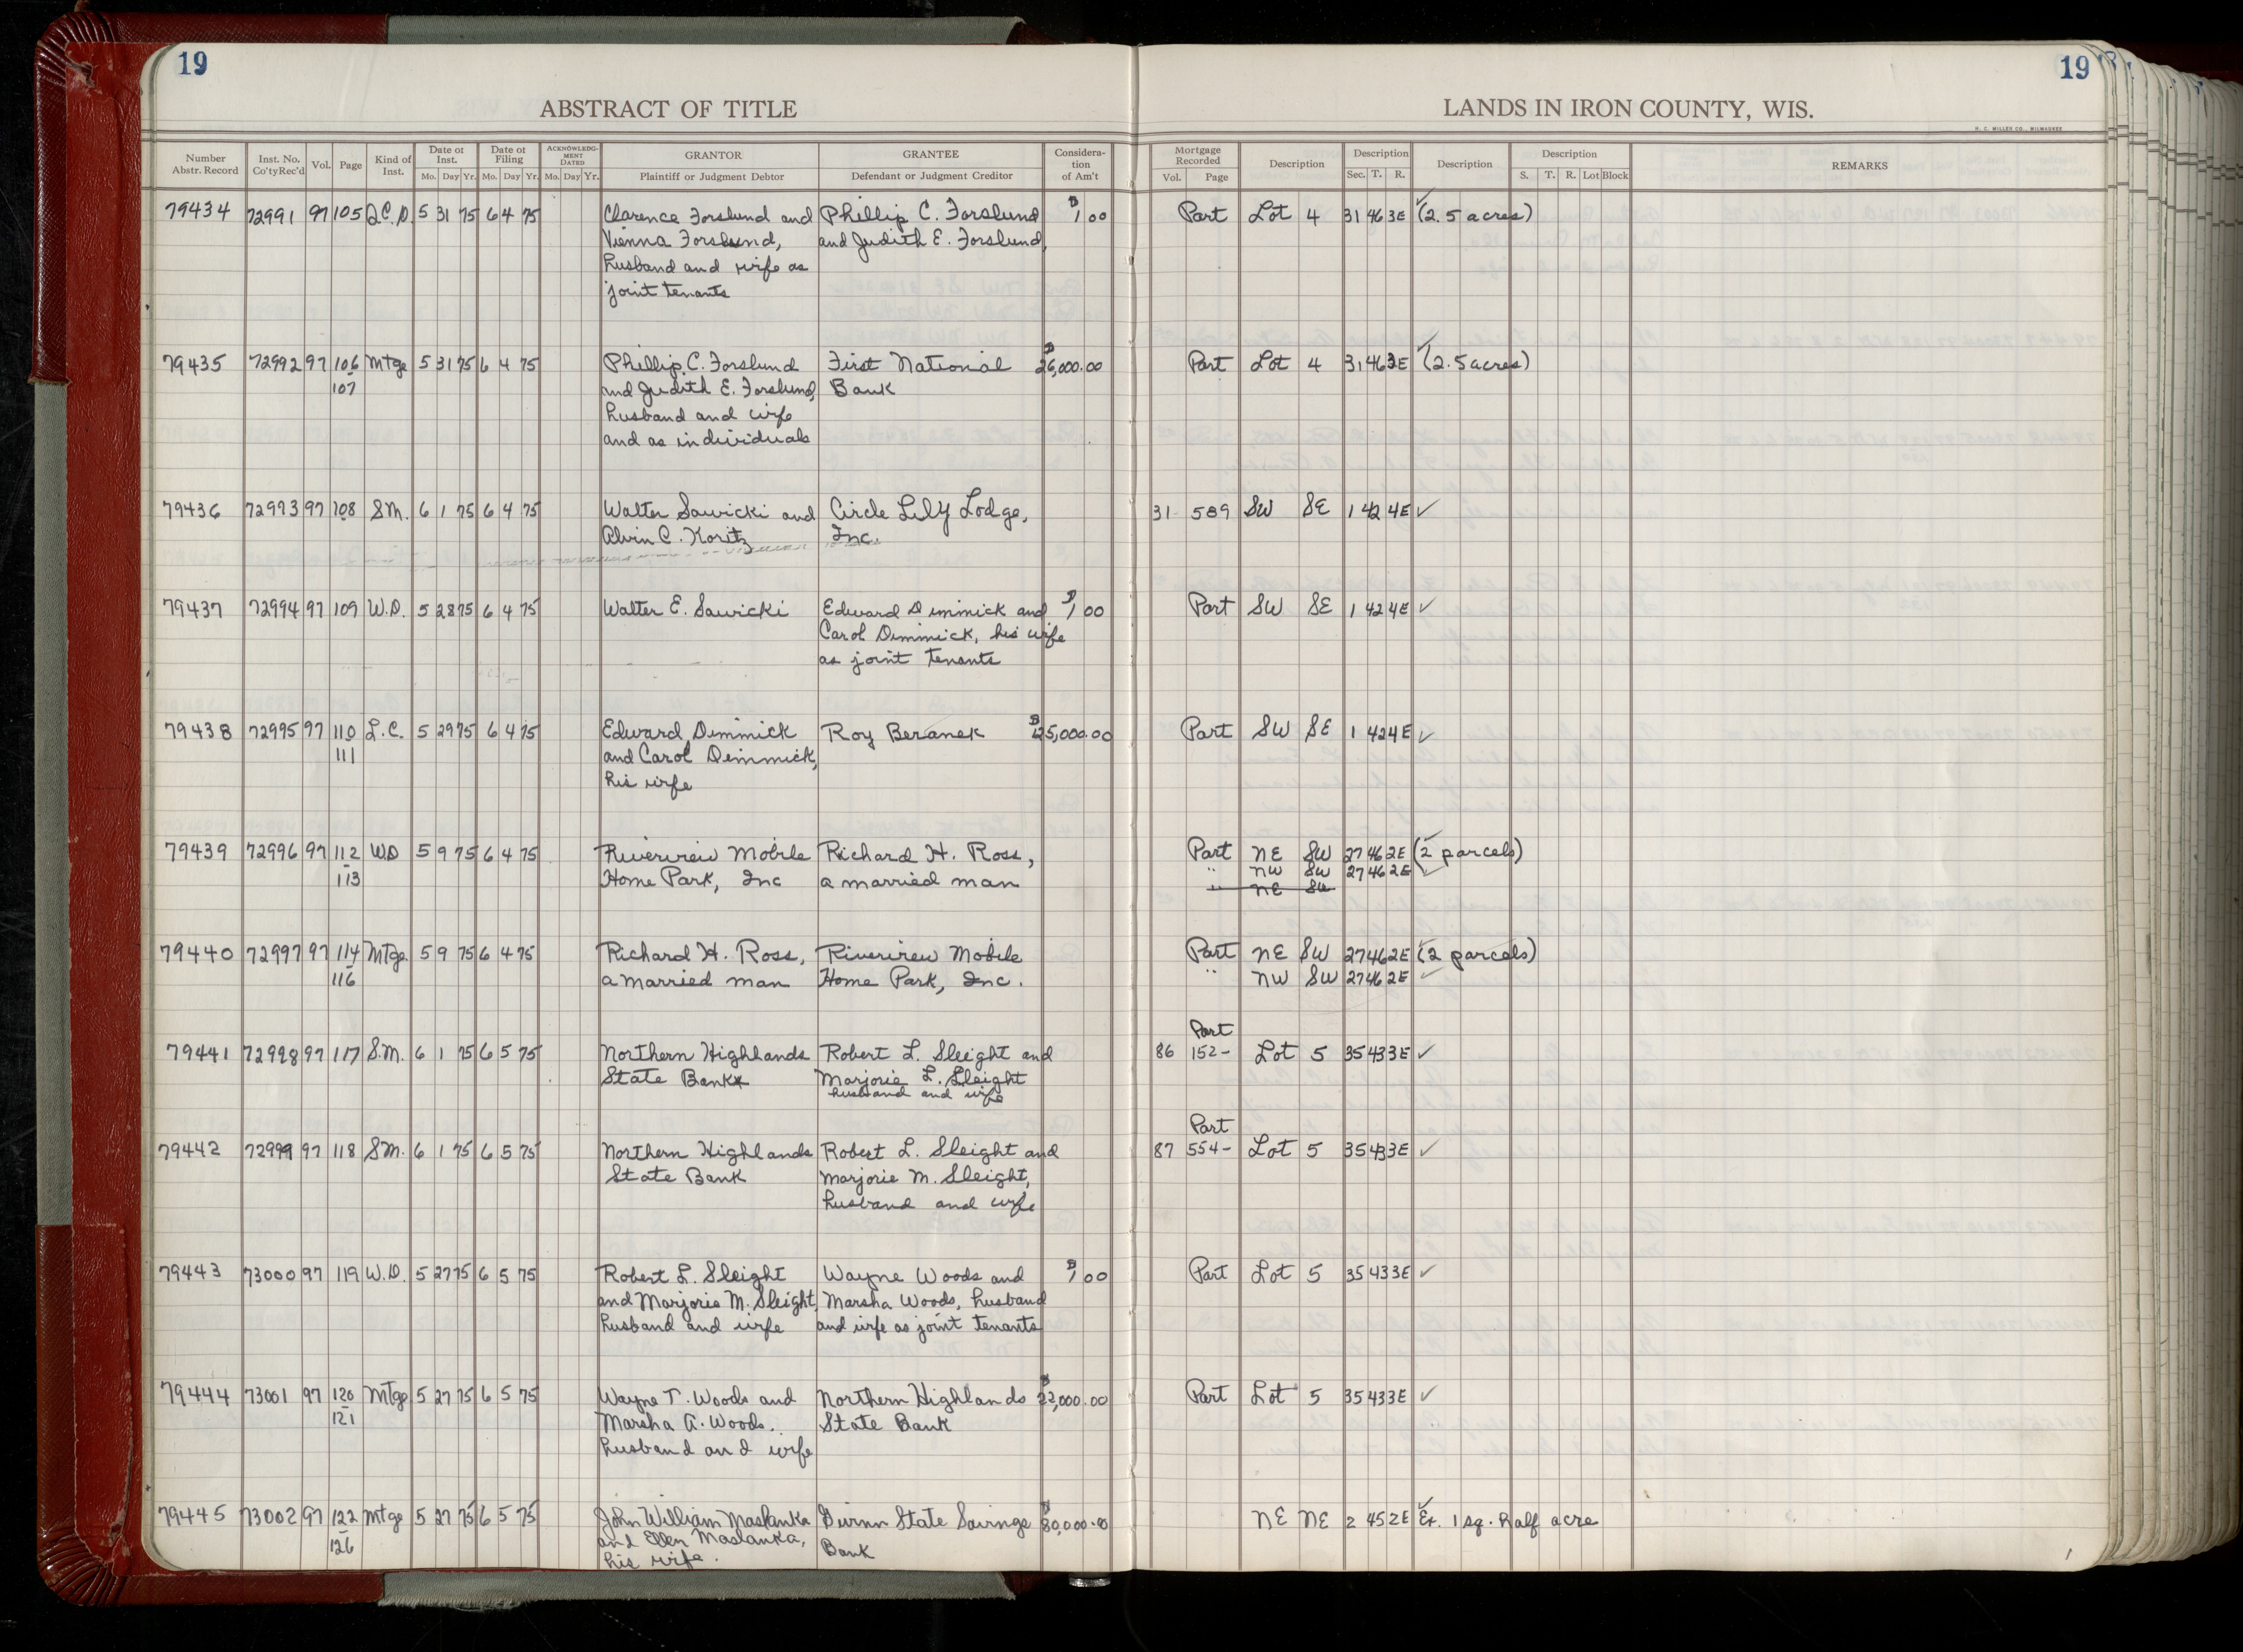 19
19
ABSTRACT OF TITLE
LANDS IN IRON COUNTY, WIS.
H. C. MILLER CO., MILWAUKEE
Number Abstr. Record Inst. No. Co'ty Rec'd Vol. Page Kind of Inst. Date of Inst. Mo. Day Yr. Date of Filing Mo. Day Yr. ACKNOWLEDGMENT DATED Mo. Day Yr. GRANTOR Plaintiff or Judgment Debtor GRANTEE Defendant or Judgment Creditor Consideration of Am't Mortgage Recorded Vol. Page Description Description Sec. T. R. Description Description S. T. R. Lot Block REMARKS
79434 72991 97 105 Q.C.D. 5 31 75 6 4 75 Clarence Forslund and Phillip C. Forslund 1 00 Part Lot 4 31 46 3E (2.5 acres)
Vienna Forslund, and Judith E. Forslund,
husband and wife as
joint tenants
79435 72992 97 106 Mtge 5 31 75 6 4 75 Phillip C. Forslund First National 26,000.00 Part Lot 4 31 46 3E (2.5 acres)
107 and Judith E. Forslund, Bank
husband and wife
and as individuals
79436 72993 97 108 S.M. 6 1 75 6 4 75 Walter Sawicki and Circle Lily Lodge, 31 589 SW SE 1 42 4E ✓
Alvin C. Koritz Inc.
79437 72994 97 109 W.D. 5 28 75 6 4 75 Walter E. Sawicki Edward Dimmick and 1 00 Part SW SE 1 42 4E ✓
Carol Dimmick, his wife
as joint tenants
79438 72995 97 110 L.C. 5 29 75 6 4 75 Edward Dimmick Roy Beranek 25,000.00 Part SW SE 1 42 4E ✓
111 and Carol Dimmick,
his wife
79439 72996 97 112 W.D 5 9 75 6 4 75 Riverview Mobile Richard H. Ross, Part NE SW 27 46 2E (2 parcels)
113 Home Park, Inc a married man " NW SW 27 46 2E ✓
" NE SW
79440 72997 97 114 Mtge. 5 9 75 6 4 75 Richard H. Ross, Riverview Mobile Part NE SW 27 46 2E (2 parcels)
116 a married man Home Park, Inc. " NW SW 27 46 2E ✓
Part
79441 72998 97 117 S.M. 6 1 75 6 5 75 Northern Highlands Robert L. Sleight and 86 152- Lot 5 35 43 3E ✓
State Bank Marjorie L. Sleight
husband and wife
Part
79442 72999 97 118 S.M. 6 1 75 6 5 75 Northern Highlands Robert L. Sleight and 87 554- Lot 5 35 43 3E ✓
State Bank Marjorie M. Sleight,
husband and wife
79443 73000 97 119 W.D. 5 27 75 6 5 75 Robert L. Sleight Wayne Woods and 1 00 Part Lot 5 35 43 3E ✓
and Marjorie M. Sleight, Marsha Woods, husband
husband and wife and wife as joint tenants
79444 73001 97 120 Mtge 5 27 75 6 5 75 Wayne T. Woods and Northern Highlands 22,000.00 Part Lot 5 35 43 3E ✓
121 Marsha A. Woods. State Bank
husband and wife
79445 73002 97 122 Mtge 5 27 75 6 5 75 John William Maslanka Gwinn State Savings 80,000.00 NE NE 2 45 2E Ex. 1 sq. half acre
126 and Ellen Maslanka, Bank
his wife.